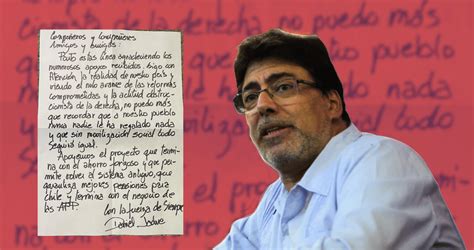 Compañeros y Compañeras
Amigos y Amigas:
estas línea agradeciendo los
numerosos apoyos recibidos. Sigo con
Atención, la realidad de nuestro país y
viendo el nulo avance de las reformas
comprometidas y la actitud obstruc-
cionista de la derecha, no puedo más
que recordar que a nuestro pueblo
nunca nadie le ha regalado nada
y que sin movilización social todo
Seguirá igual.
Apoyemos el proyecto que termi-
na con el ahorro forzoso y que per-
mite volver al sistema antiguo, que
garantiza mejores pensiones para
Chile y termina con el negocio de
las AFP.
Con la fuerza de Siempre
Daniel Jadue
cionista de la derecha, no puedo más